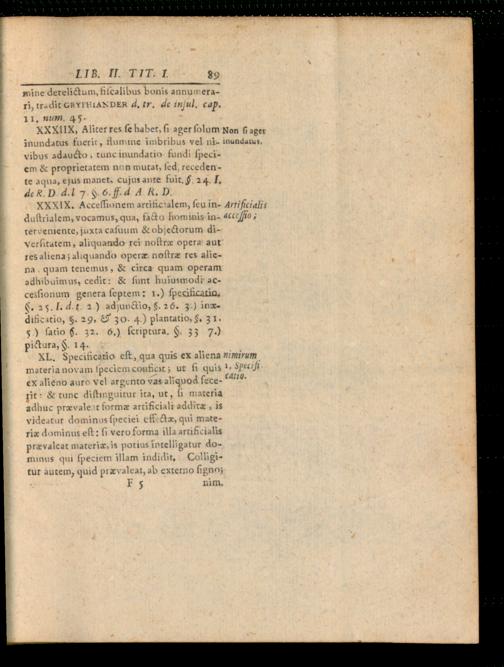 LIB. II. TIT. I. 89
mine derelictum, fiscalibus bonis annumera-
ri, tradit GRYPHIANDER d. tr. de insul. cap.
11. num. 45.
XXXIIX. Aliter res se habet, si ager solum
Non si ager
inundatus fuerit, flumine imbribus vel ni-
inundatus.
vibus adaucto, tunc inundatio fundi speci-
em & proprietatem non mutat, sed, receden-
te aqua, ejus manet. cujus ante fuit. §. 24. I.
de R. D. d. l 7. §. 6. ff. d A. R. D.
XXXIX. Accessionem artificialem, seu in-
Artificialis
dustrialem, vocamus, qua, facto hominis in-
accessio;
terveniente, juxta casuum & objectorum di-
versitatem, aliquando rei nostræ opera aut
res aliena; aliquando operæ nostræ res alie-
na quam tenemus, & circa quam operam
adhibuimus, cedit: & sunt huiusmodi ac-
cessionum genera septem: 1.) specificatio,
§. 25. I. d. t. 2) adjunctio, §. 26. 3.) inæ-
dificatio, §. 29. & 30. 4.) plantatio, §. 31.
5) satio §. 32. 6.) scriptura, §. 33 7.)
pictura, §. 14.
XL. Specificatio est, qua quis ex aliena
nimirum
materia novam speciem conficit; ut si quis
1. Specifi
ex alieno auro vel argento vas aliquod fece-
catio.
rit: & tunc distinguitur ita, ut, si materia
adhuc prævaleat formæ artificiali additæ, is
videatur dominus speciei effectæ, qui mate-
riæ dominus est: si vero forma illa artificialis
prævaleat materiæ, is potius intelligatur do-
minus qui speciem illam indidit. Colligi-
tur autem, quid prævaleat, ab externo signo;
F 5 nim.